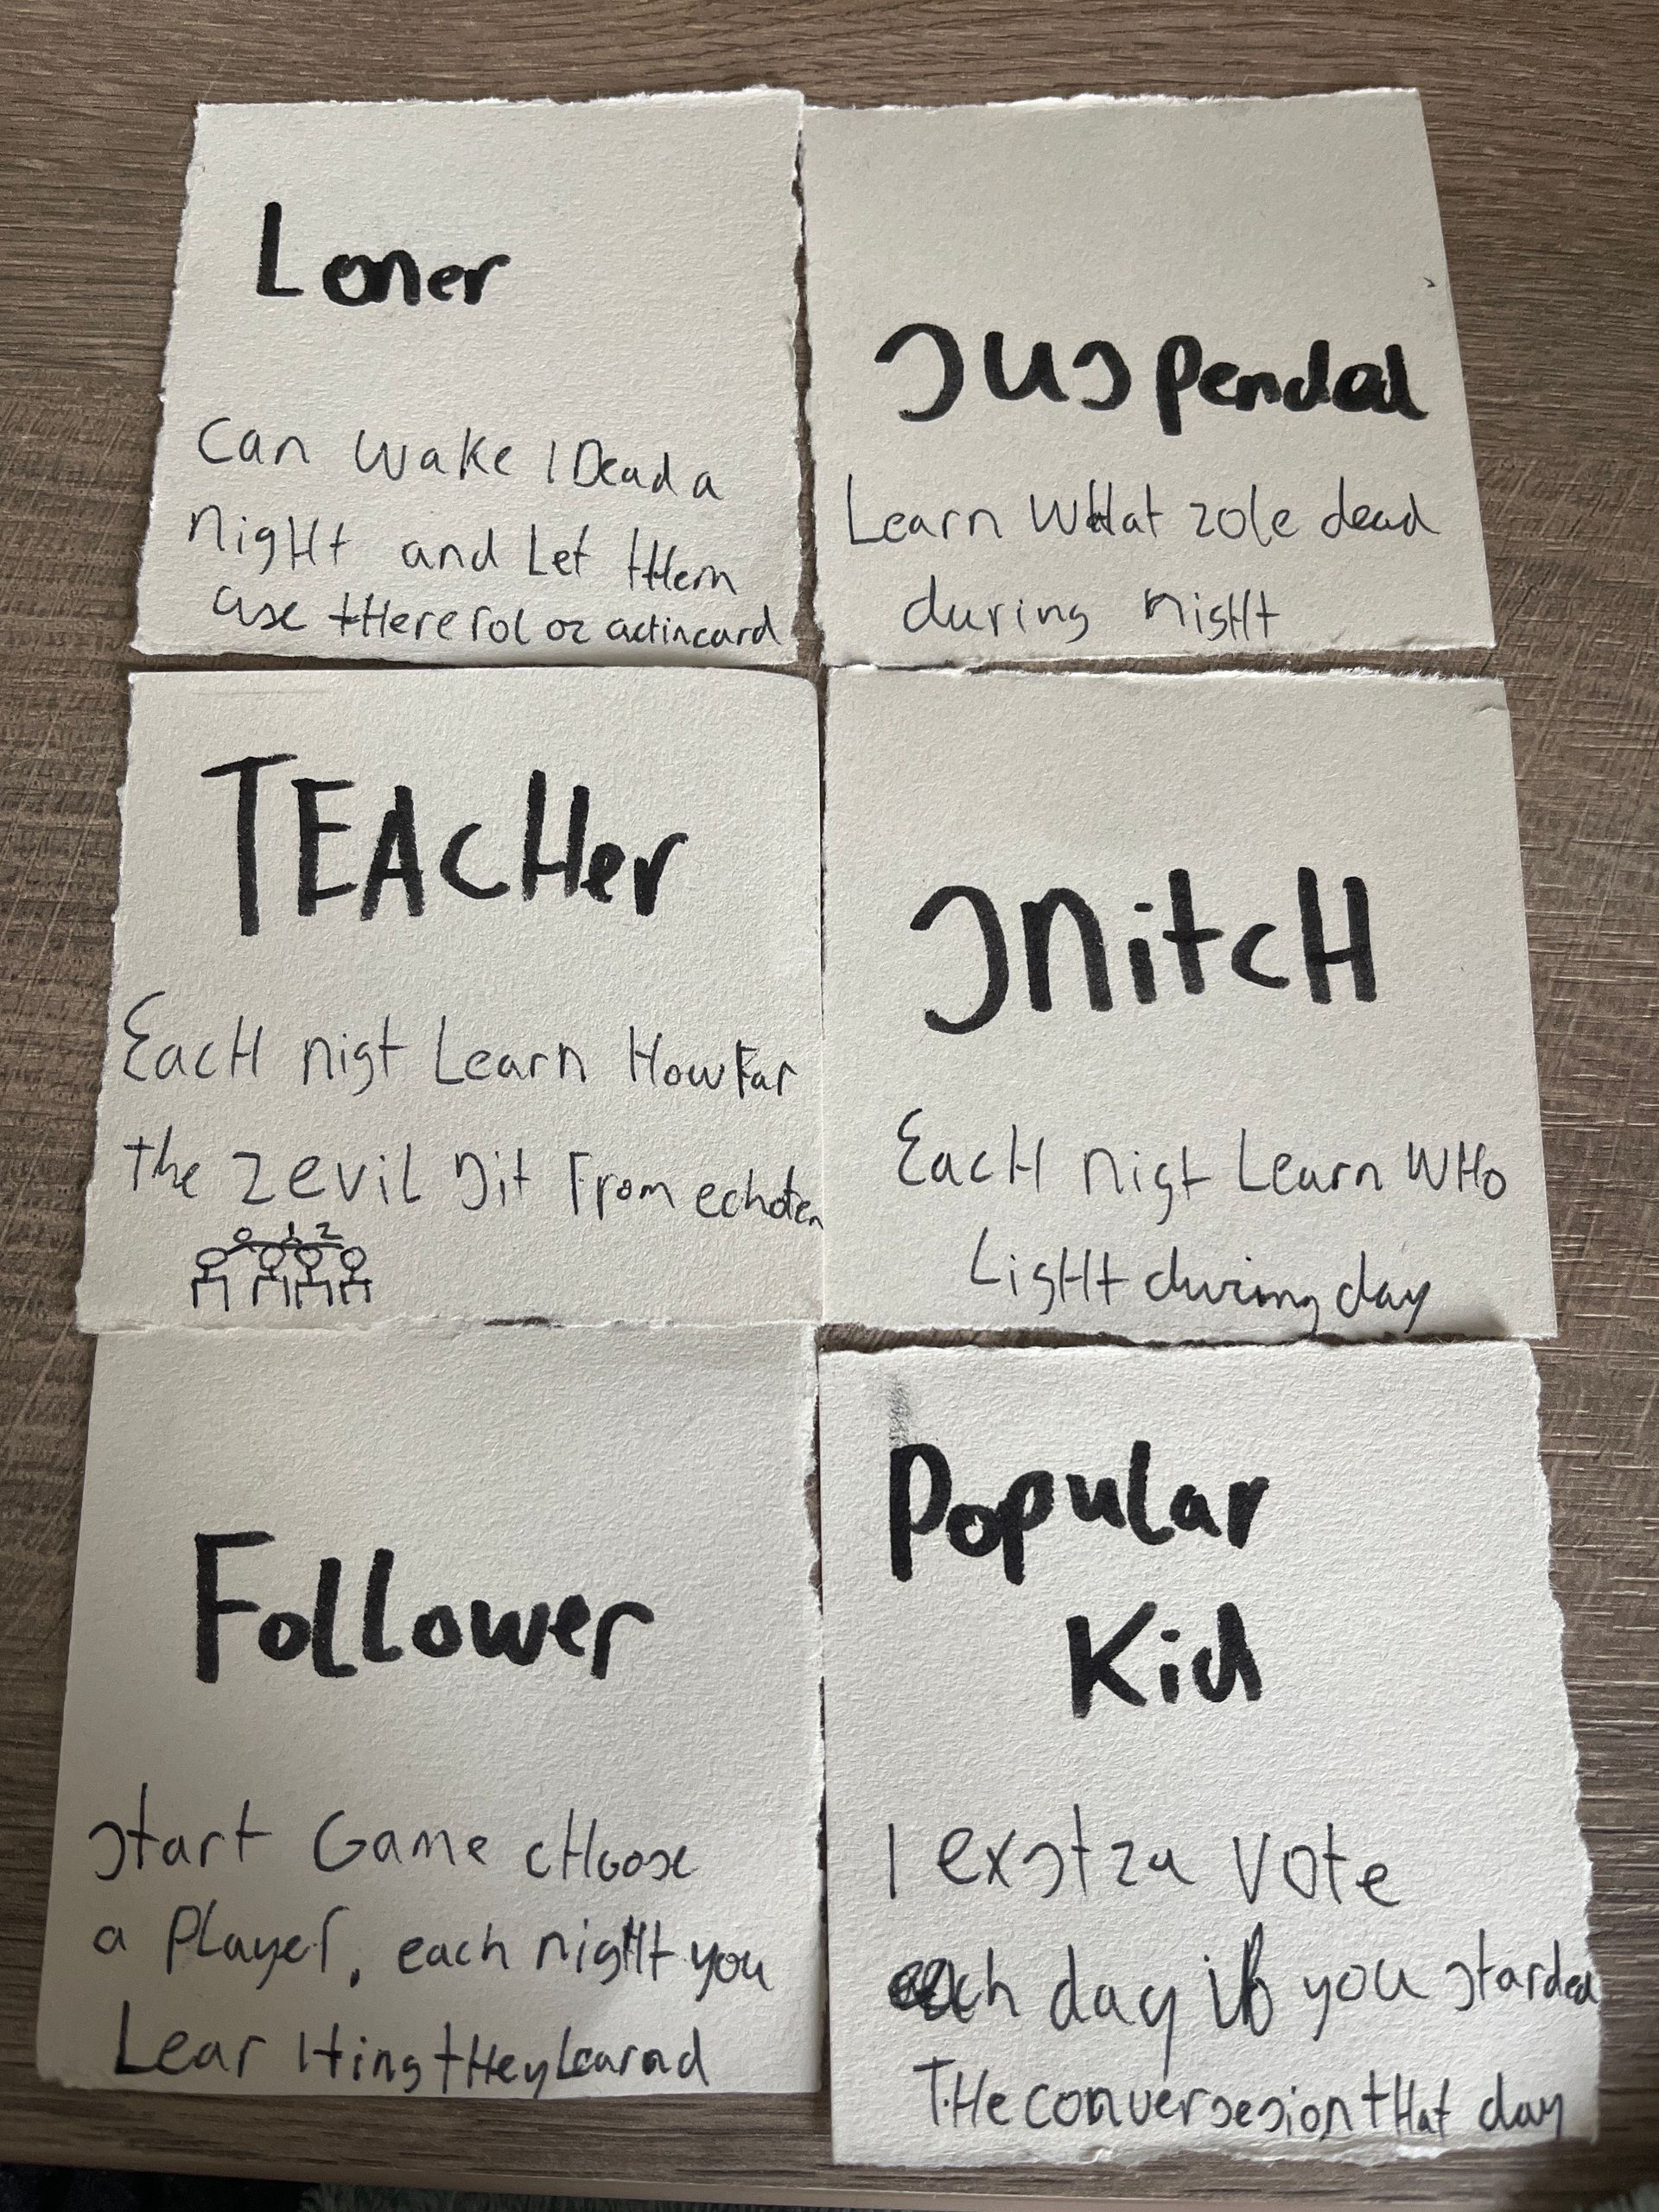 Loner
Can wake 1 Dead a
nigHt and Let tHem
use tHere rol or actincard
Suspended
Learn WHat role dead
during nigHt
TEACHer
EacH nigt Learn How Far
the 2 evil sit From echoter
1 2
SnitcH
EacH nigt Learn WHo
LigHt during day
Follower
Start Game cHoose
a Player, each nigHt you
Lear 1 ting tHey Learnd
Popular
Kid
1 exstra vote
each day if you starded
THe conversesion tHat day